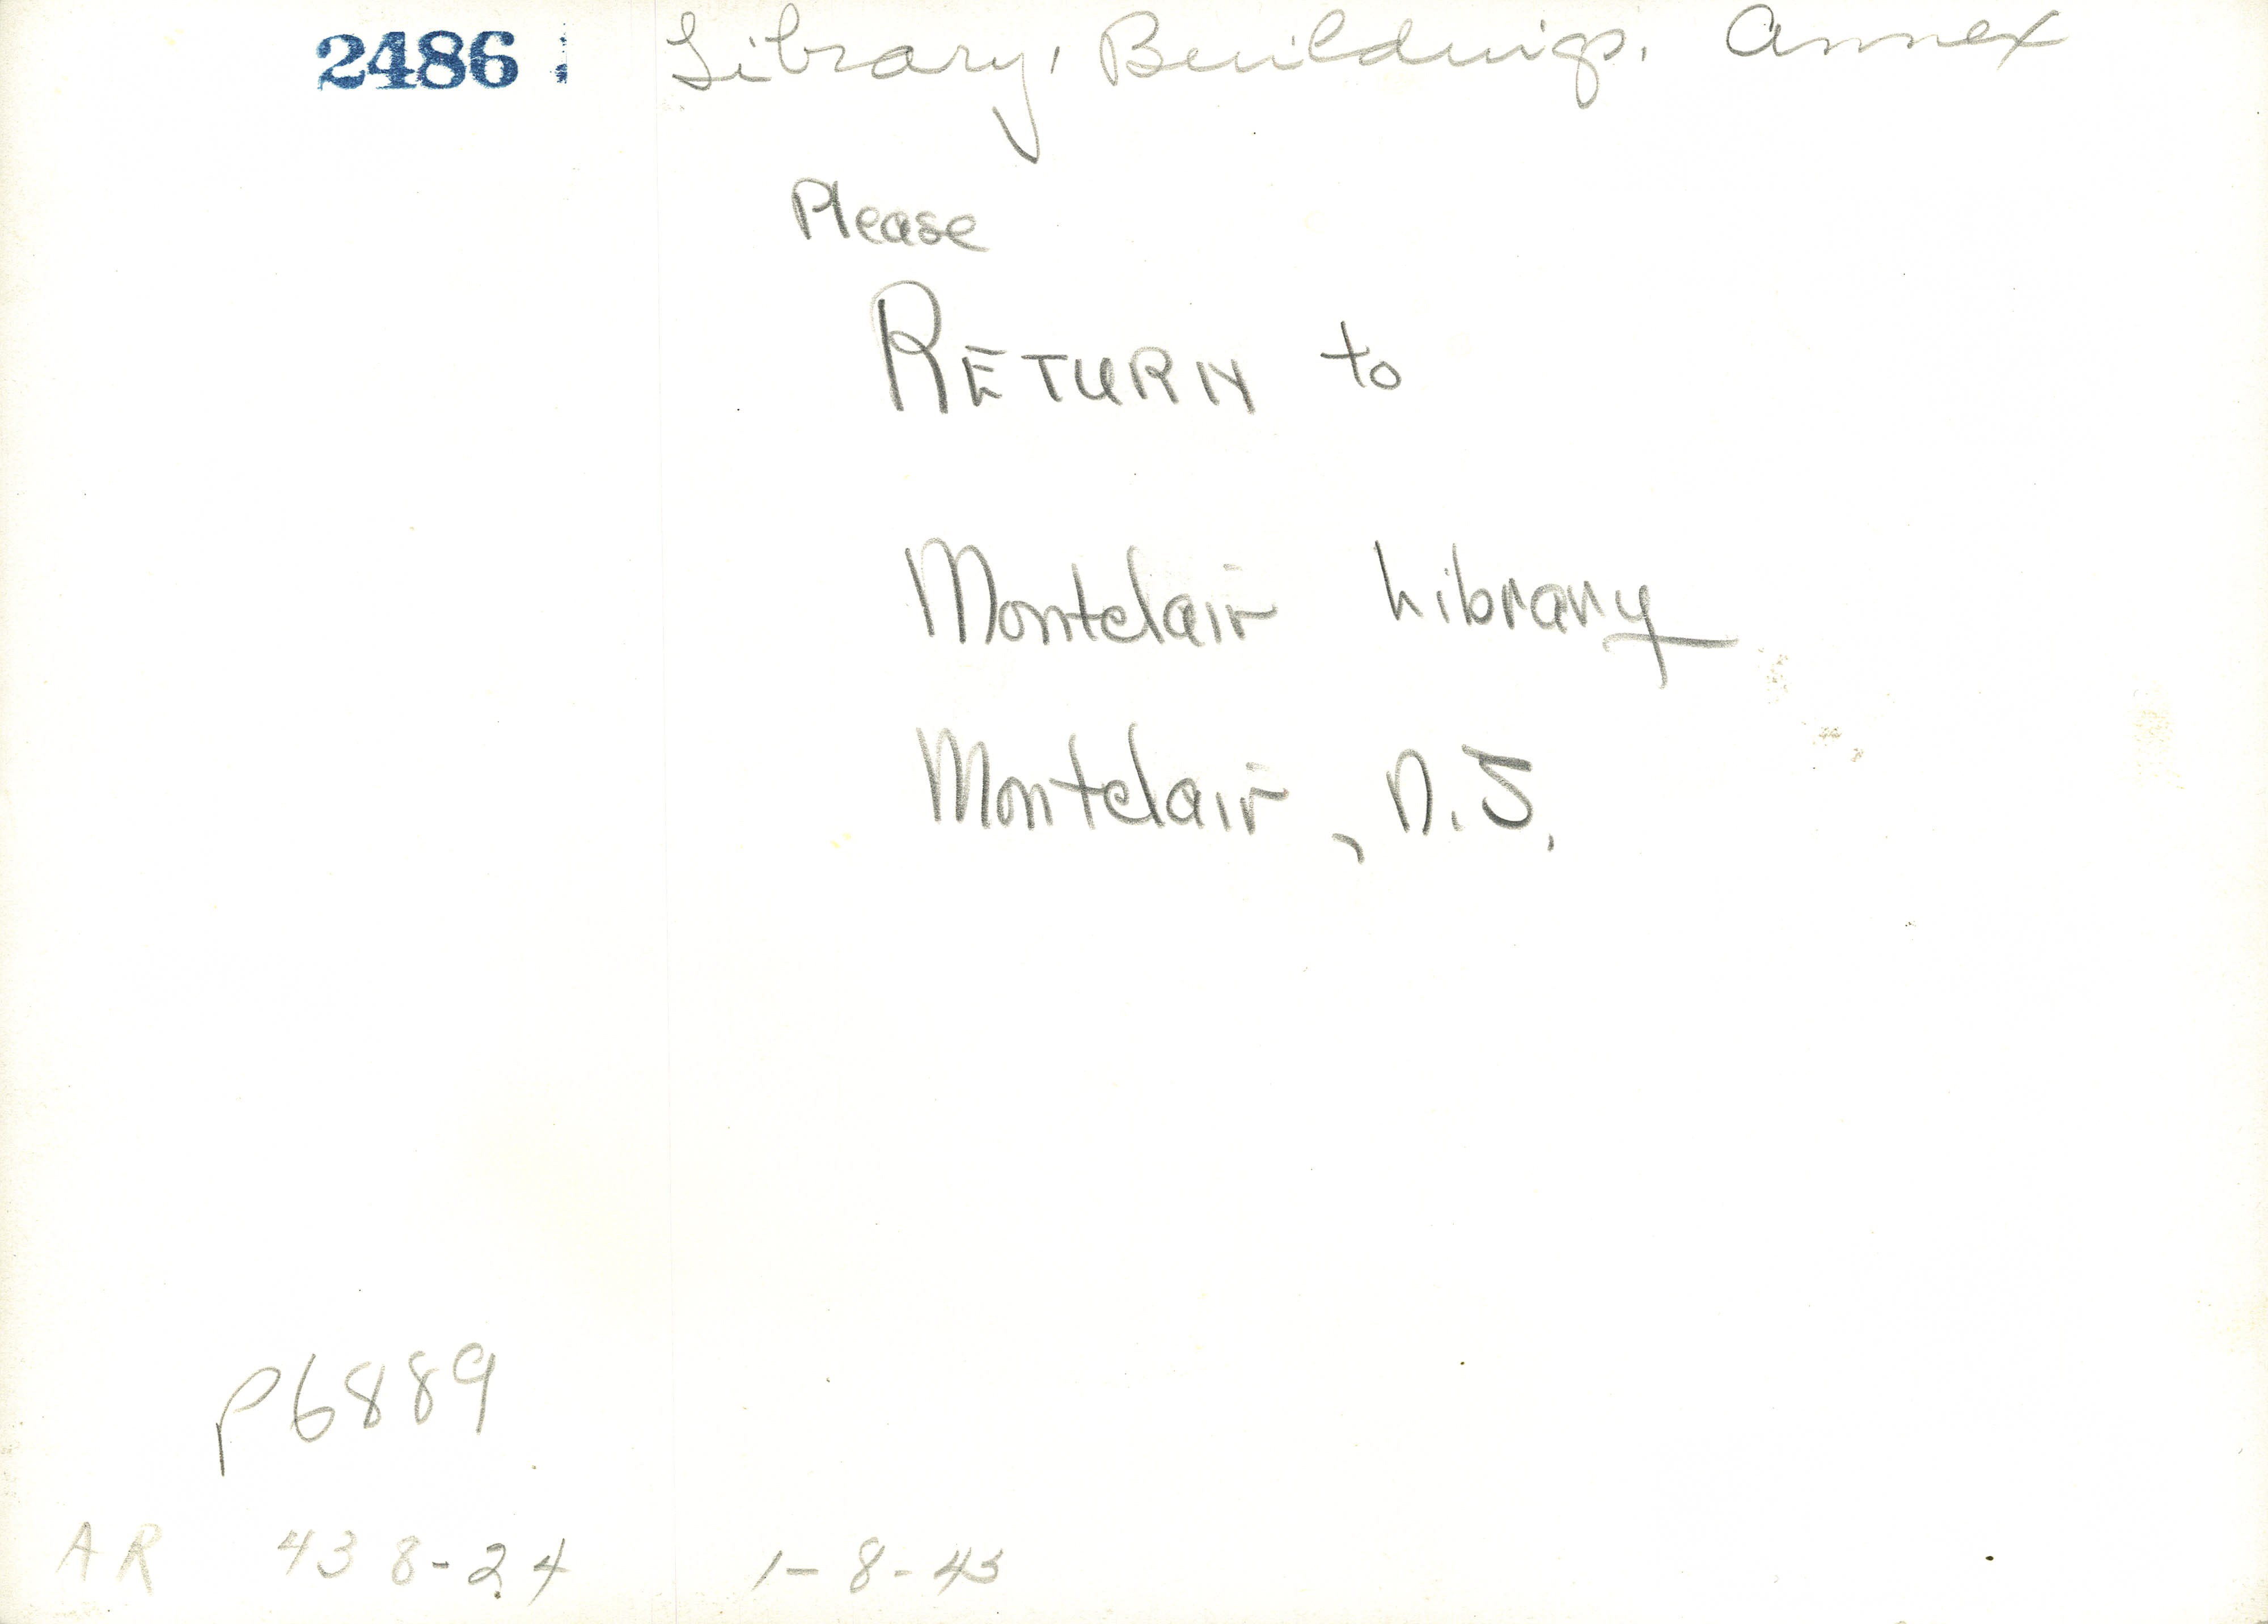 2486 Library, Buildings, Annex
Please
RETURN to
Montclair Library
Montclair, N.J.
P6889
AR 438-24 1-8-43